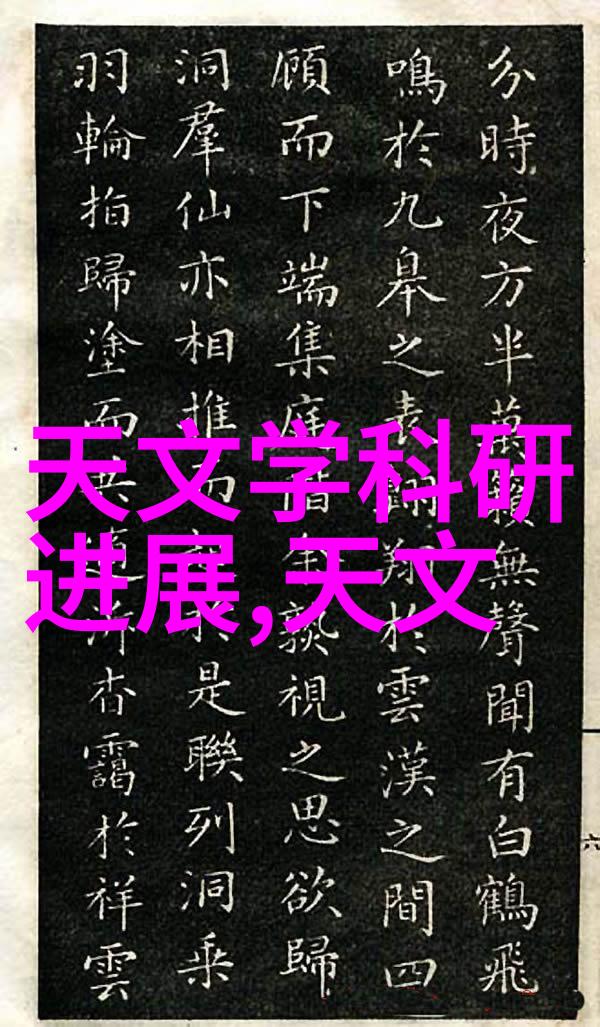 天文学科研
进展,天文
分時夜方半萬籟無聲聞有白鶴飛
鳴於九皋之表翔於雲漢之間四
顧而下端集庭階熟視之思欲歸
洞羣仙亦相推而於是聯列洞乘
羽輪指歸塗而共杳靄於祥雲
六